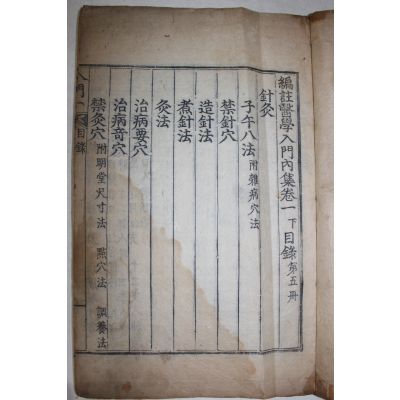 編註醫學入門內集卷一下目錄第五冊
針灸
子午八法附雜病穴法
禁針穴
造針法
煮針法
灸法
治病要穴
治病竒穴
禁灸穴附明堂尺寸法 點穴法 調養法
入門一 目錄